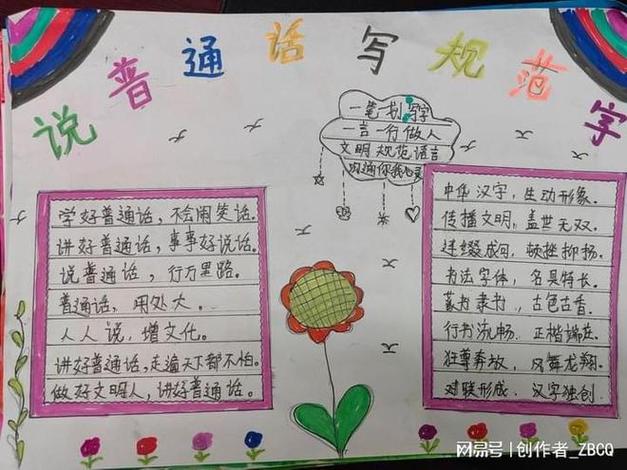 说普通话写规范字
一笔一划写字
一言一行做人
文明规范语言
沟通你我心灵
学好普通话，不会闹笑话。
讲好普通话，事事好说话。
说普通话，行万里路。
普通话，用处大。
人人说，增文化。
讲好普通话，走遍天下都不怕。
做好文明人，讲好普通话。
中华汉字，生动形象。
传播文明，盖世无双。
连缀成词，顿挫抑扬。
书法字体，各具特长。
篆书隶书，古色古香。
行书流畅，正楷端庄。
狂草奔放，凤舞龙翔。
对联形成，汉字独创。
网易号 | 创作者_ZBCQ